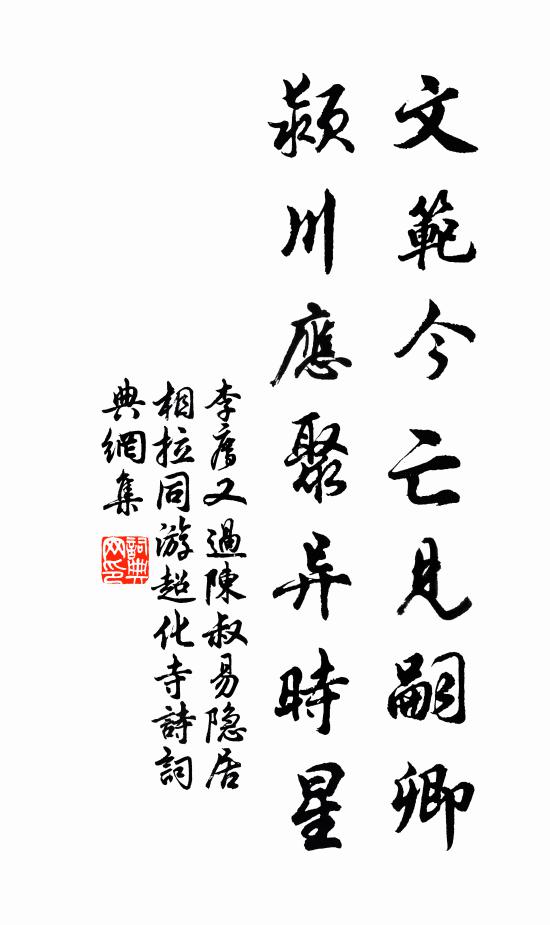 文範今亡見嗣卿
潁川應聚异時星
李廌又過陳叔易隐居
相拉同游超化寺詩詞
典網集
詞典
网印